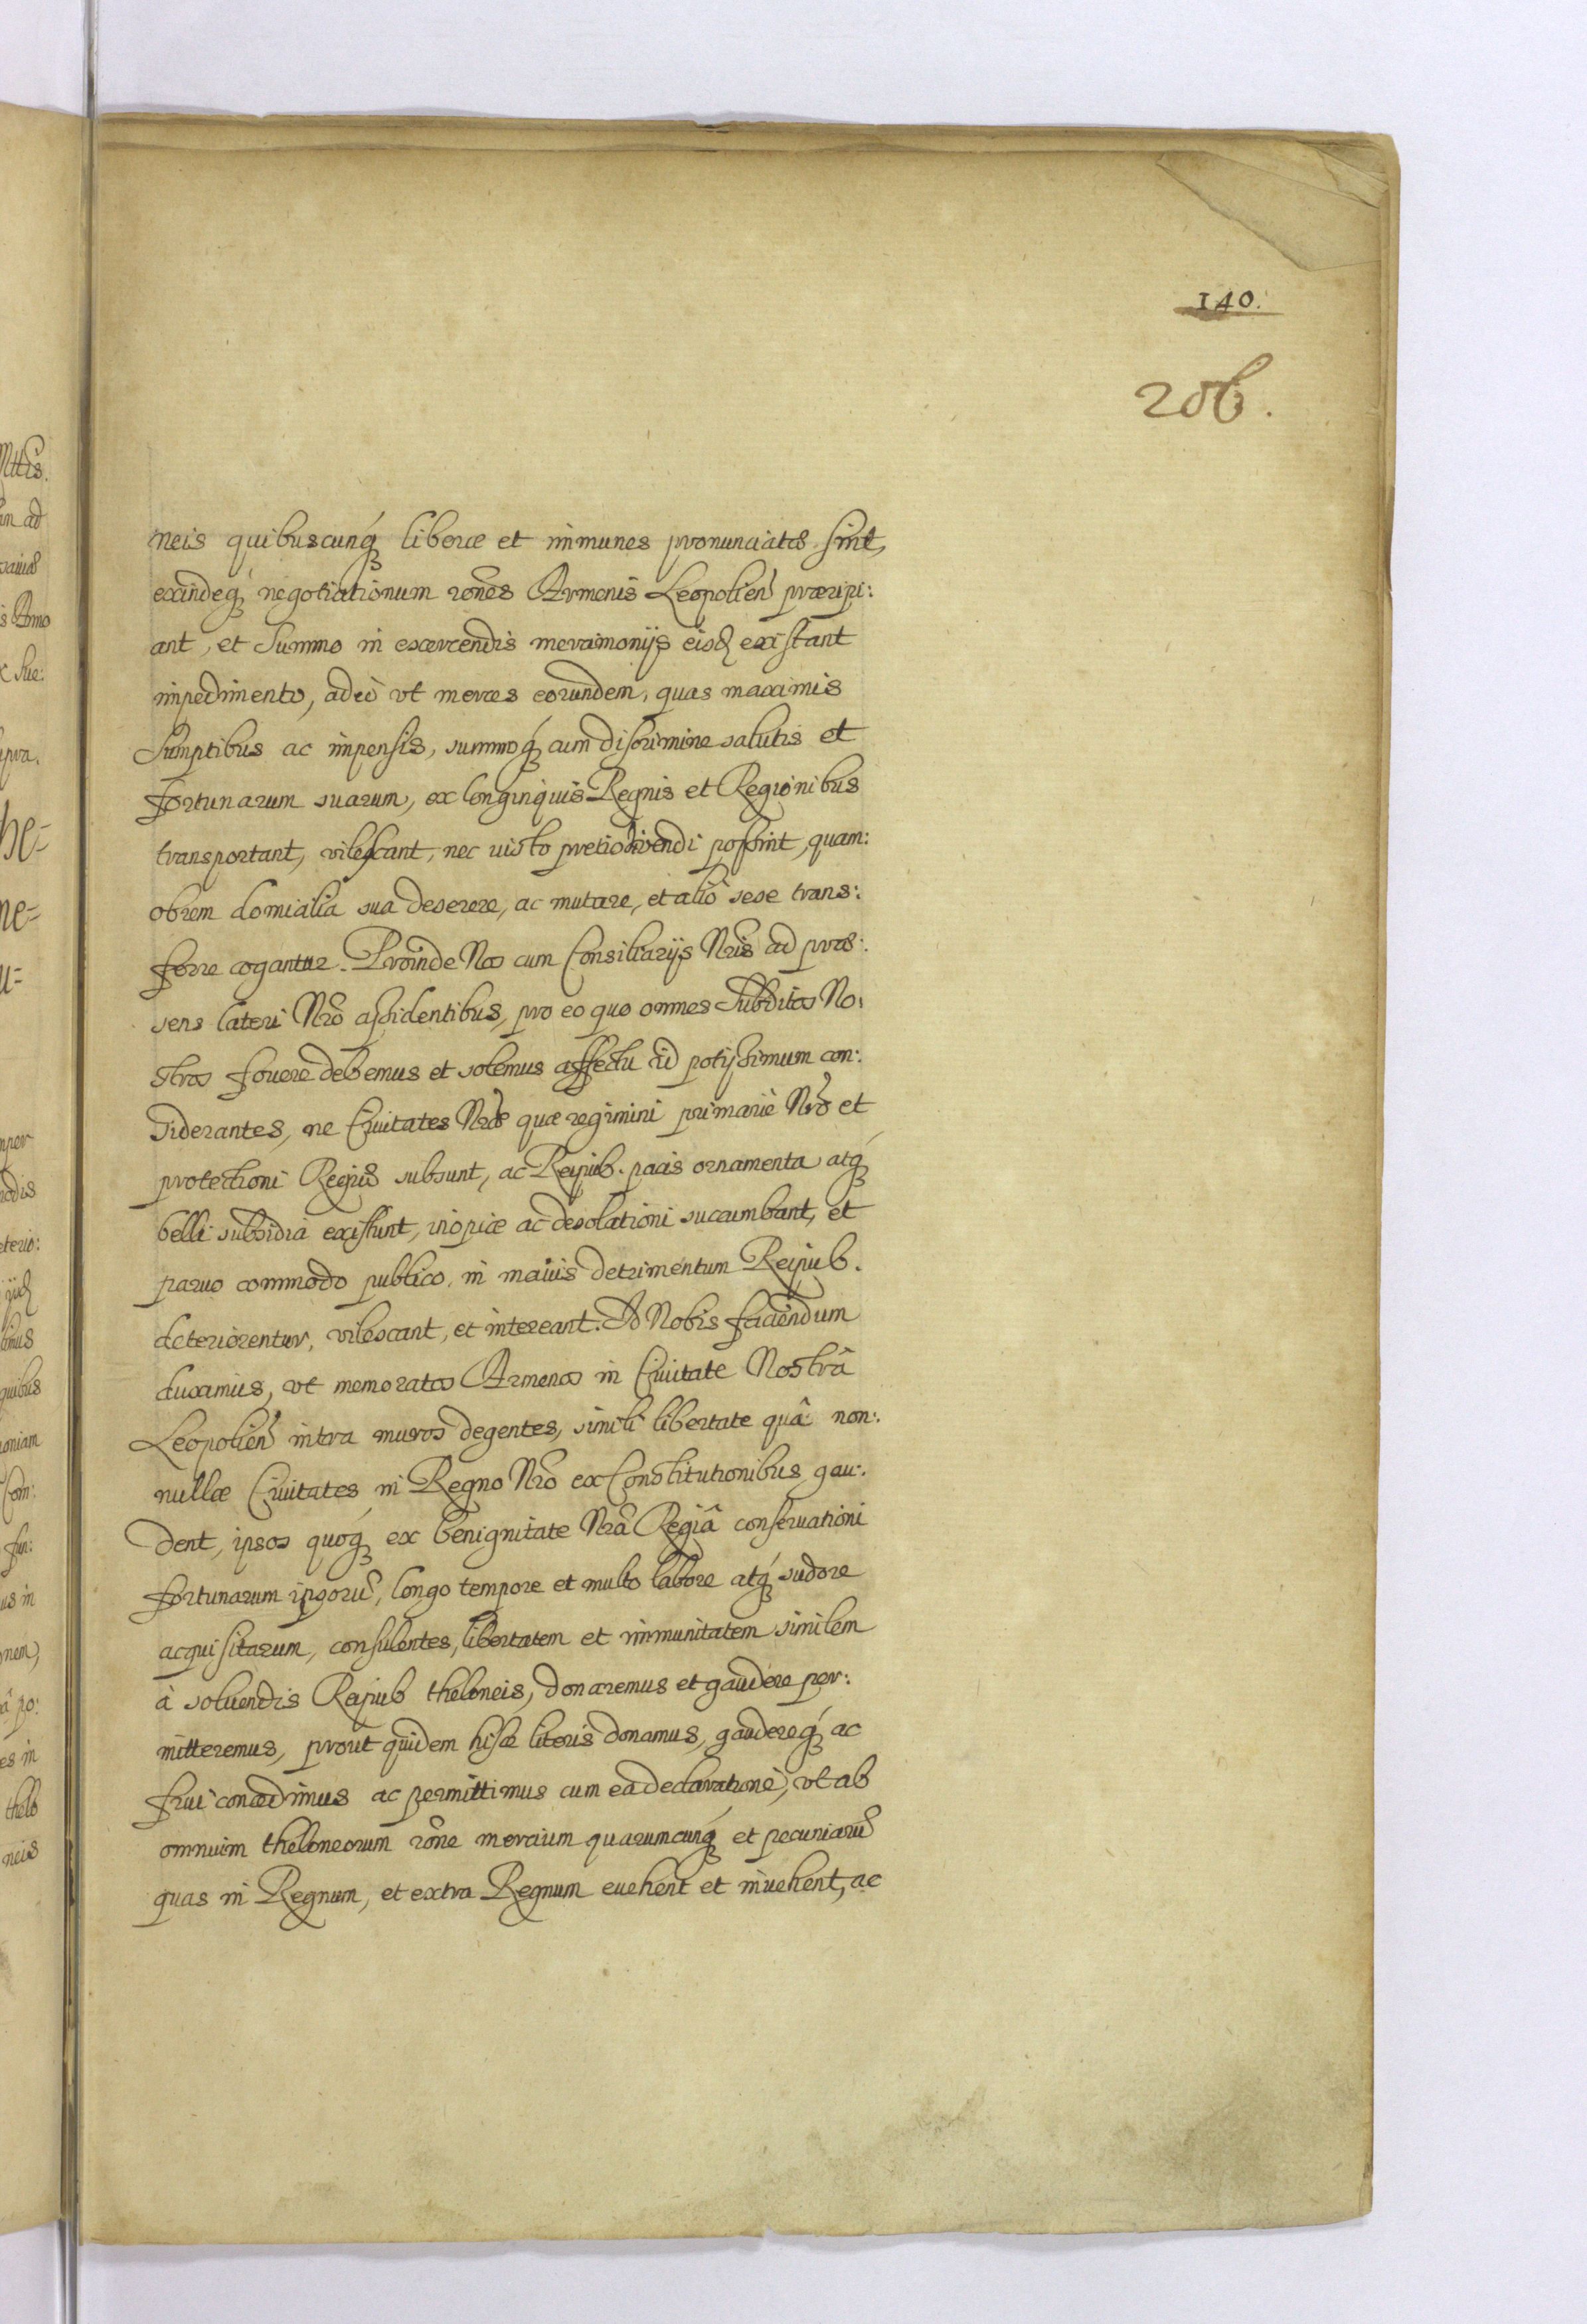 140.
206.
neis quibuscunq́ liberæ et immunes pronunciatæ sint,
exindeq́ negotiationum rõnes Armenis Leopolien̄ præripi:
ant, et Summo in exercendis mercimonijs eisd existant
impedimento, adeò vt merces eorundem, quas maximis
Sumptibus ac impensis, summoq́ cum discrimine salutis et
fortunarum suarum, ex longinquis Regnis et Regionibus
transportant, vilescant, nec iusto pretio divendi possint, quam:
obrem domicilia sua deserere, ac mutare, et aliò sese trans:
ferre cogantur. Proinde Nos cum Consiliarijs Nr̃is ad præ:
sens lateri Nr̃o assidentibus, pro eo quo omnes Subditos No:
stros fouere debemus et solemus affectu id potissimum con:
siderantes, ne Ciuitates Nr̃æ quæ regimini primariè Nr̃o et
protectioni Regiæ subsunt, ac Reipub. pacis ornamenta atq́
belli subsidia existunt, inopiæ ac desolationi succumbant, et
paruo commodo publico, in maius detrimentum Reipub.
deteriorentur, vilescant, et intereant. Id Nobis faciendum
duximus, vt memoratos Armenos in Ciuitate Nostrâ
Leopolien̄ intra muros degentes, simili libertate quâ non:
nullæ Ciuitates in Regno Nr̃o ex Constitutionibus gau:
dent, ipsos quoq́ ex benignitate Nr̃â Regiâ conseruationi
fortunarum ipsorũ, longo tempore et multo labore atq́ sudore
acquisitarum, consulentes, libertatem et immunitatem similem
à soluendis Reipub theloneis, donaremus et gaudere per:
mitteremus, prout quidem hisce literis donamus, gaudereq́ ac
frui concedimus ac permittimus cum ea declaratione, vt ab
omnium theloneorum rõne mercium quarumcunq́ et pecuniarũ
quas in Regnum, et extra Regnum euehent et inuehent, ac